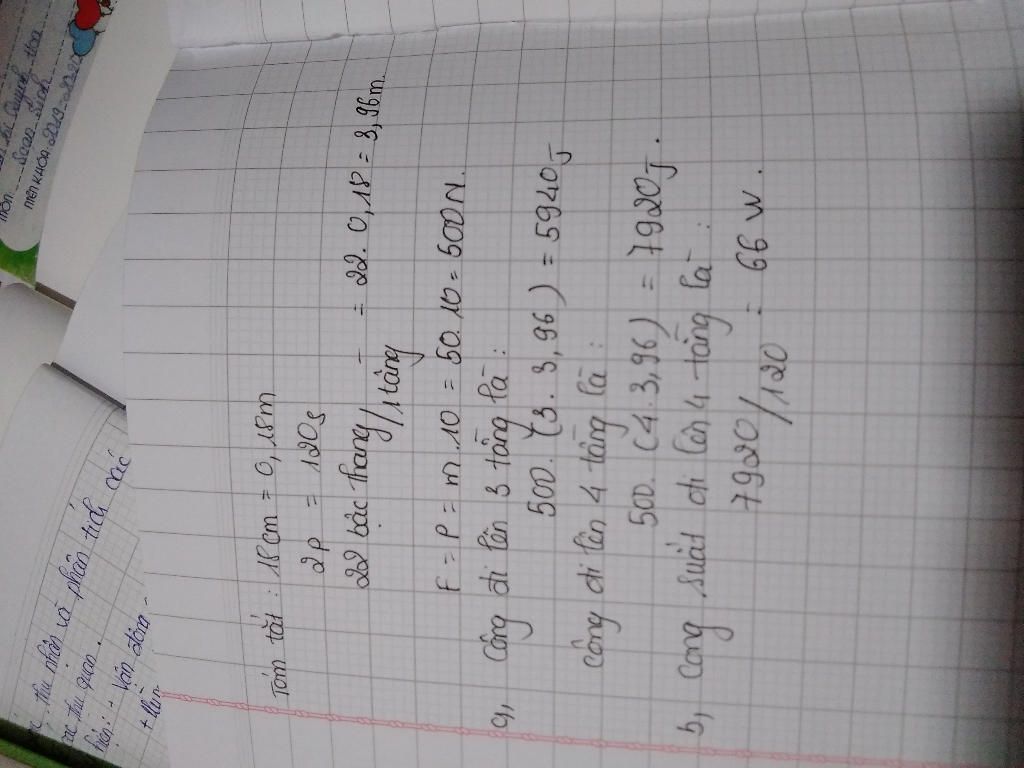 Tóm tắt : 18cm = 0,18m
2P = 120s
22 bậc thang/1 tầng = 22. 0,18 = 3,96m.
F = P = m.10 = 50.10 = 500N.
a, Công đi lên 3 tầng là :
500. (3. 3,96) = 5940J
Công đi lên 4 tầng là :
500. (4. 3,96) = 7920J.
b, Công suất đi lên 4 tầng là :
7920/120 = 66 W.
thu nhận và phân tích các
thu giao
hiện: - Vận động
2019-2020